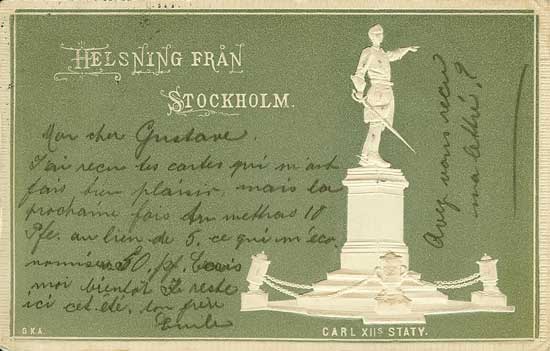 HELSNING FRÅN
STOCKHOLM.
Mon cher Gustave.
J'ai reçu tes cartes qui m'ont
fait bien plaisir, mais la
prochaine fois tu mettras 10
Pfe. au lien de 5, ce qui m'éco-
nomisera 50. pf. Ecris
moi bientôt Je reste
ici cet été, ton frère
Emile
Avez vous reçu
ma lettre?
G.K.A.
CARL XIIS STATY.